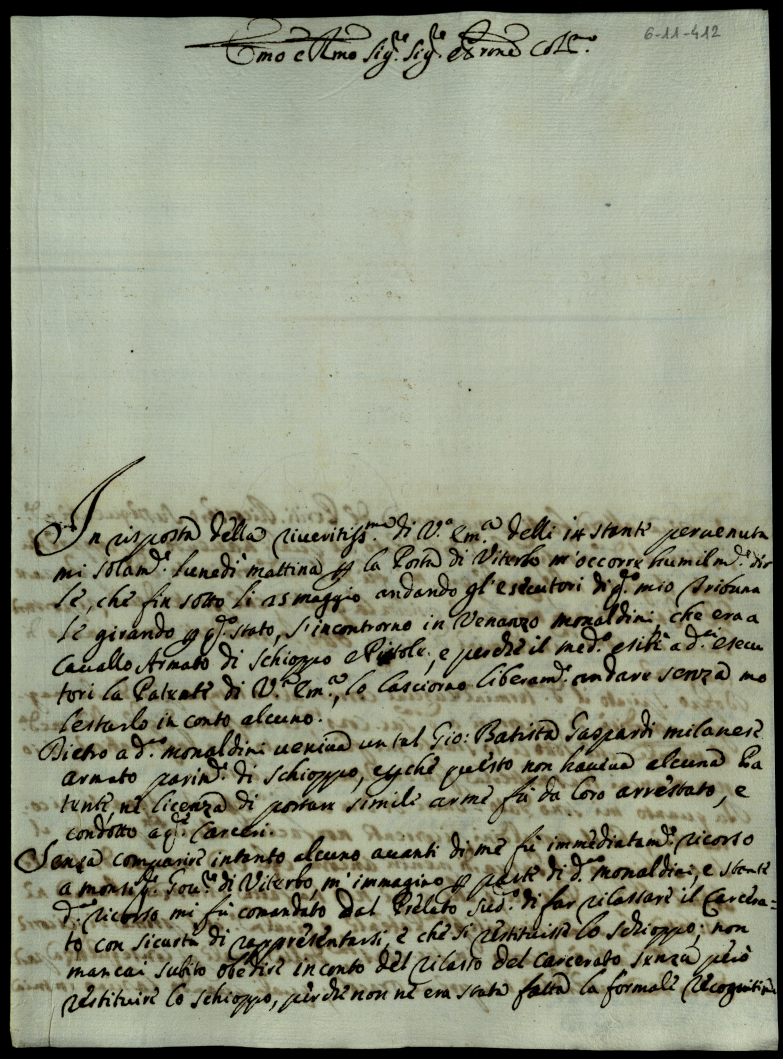 6-11-412
Emo e Rmo Sig.re Sig.re e Prone Col.mo
In risposta della riveritiss.ma di V.a Em.a delli 14 stante pervenuta
mi solam.e lunedì mattina p la Posta di Viterbo m'occorre humilm.e dir
le, che fin sotto li 25 maggio andando gl'esecutori di q.o mio Tribuna
le girando p q.o stato, s'incontrorno in Venanzo Monaldini, che era a
Cavallo Armato di Schioppo e Pistole, e perche il med.o esibì a d.i esecu
tori la Patente di V.a Em.a, lo lasciorno liberam.e andare senza mo
lestarlo in conto alcuno.
Dietro a d.o Monaldini veniva un tal Gio: Batista Gaspardi milanese
armato parim.e di schioppo, e pche questo non haveva alcuna Pa
tente, nè licenza di portare simile arme fù da loro arrestato, e
condotto a q.e Carceri.
Senza comparire intanto alcuno avanti di me fù immediatam.e ricorso
a Monsig.r Gov.re di Viterbo, m'immagino p parte di d.o Monaldini, e stante
d.o ricorso mi fù comandato dal Prelato sud.o di far rilassare il Carcera=
to con sicurtà di rappresentarsi, e che si restituisse lo schioppo; non
mancai subito obedire in conto del rilasso del Carcerato senza però
restituire lo schioppo, perche non ne era stata fatta la formale recognitione